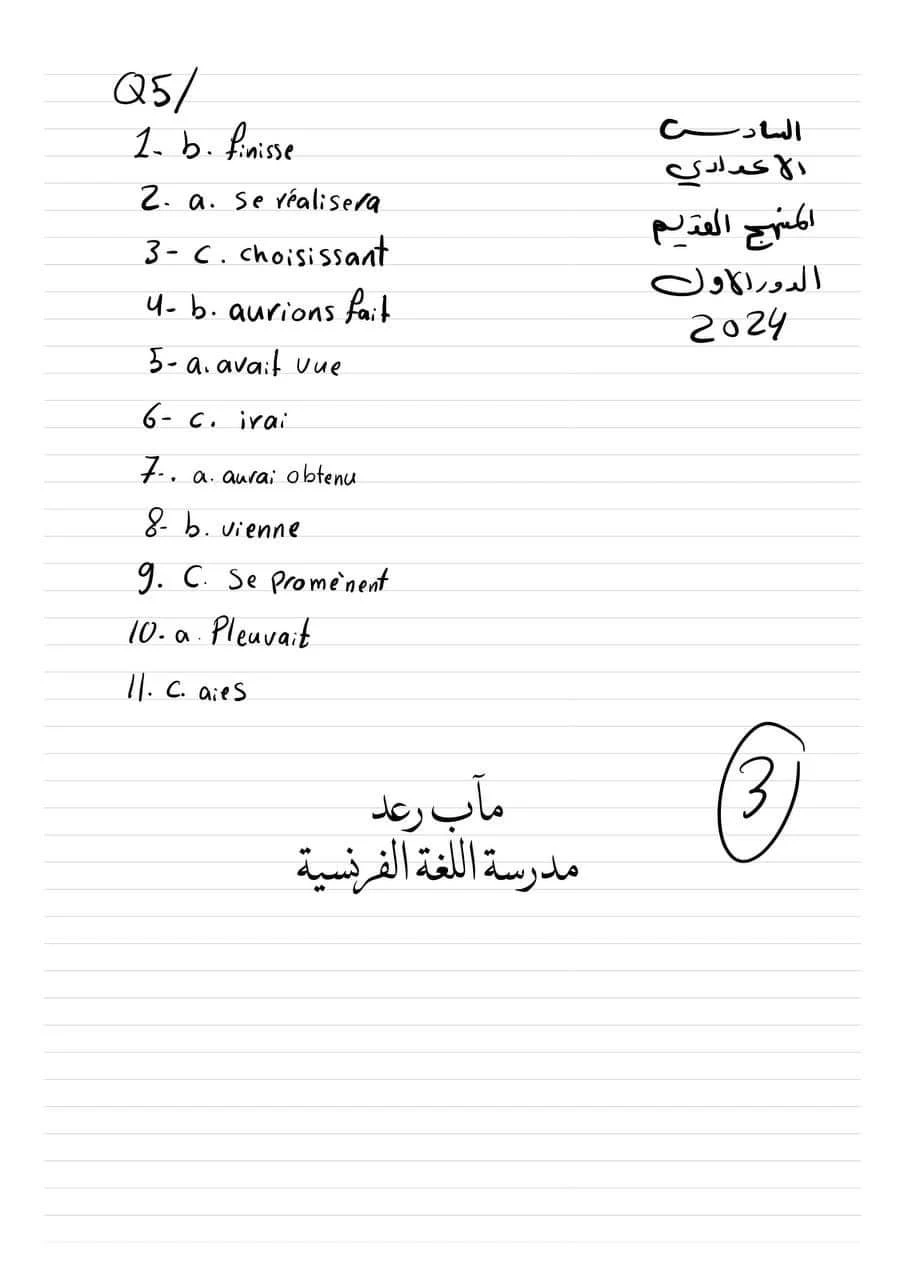 Q5/
1- b. finisse
2- a. se réalisera
3- c. choisissant
4- b. aurions fait
5- a. avait vue
6- c. irai
7-. a. aurai obtenu
8- b. vienne
9. C. se promènent
10. a. Pleuvait
11. c. aies
السادس
الاعدادي
المنهج القديم
الدور الاول
2024
3
مآب رعد
مدرسة اللغة الفرنسية